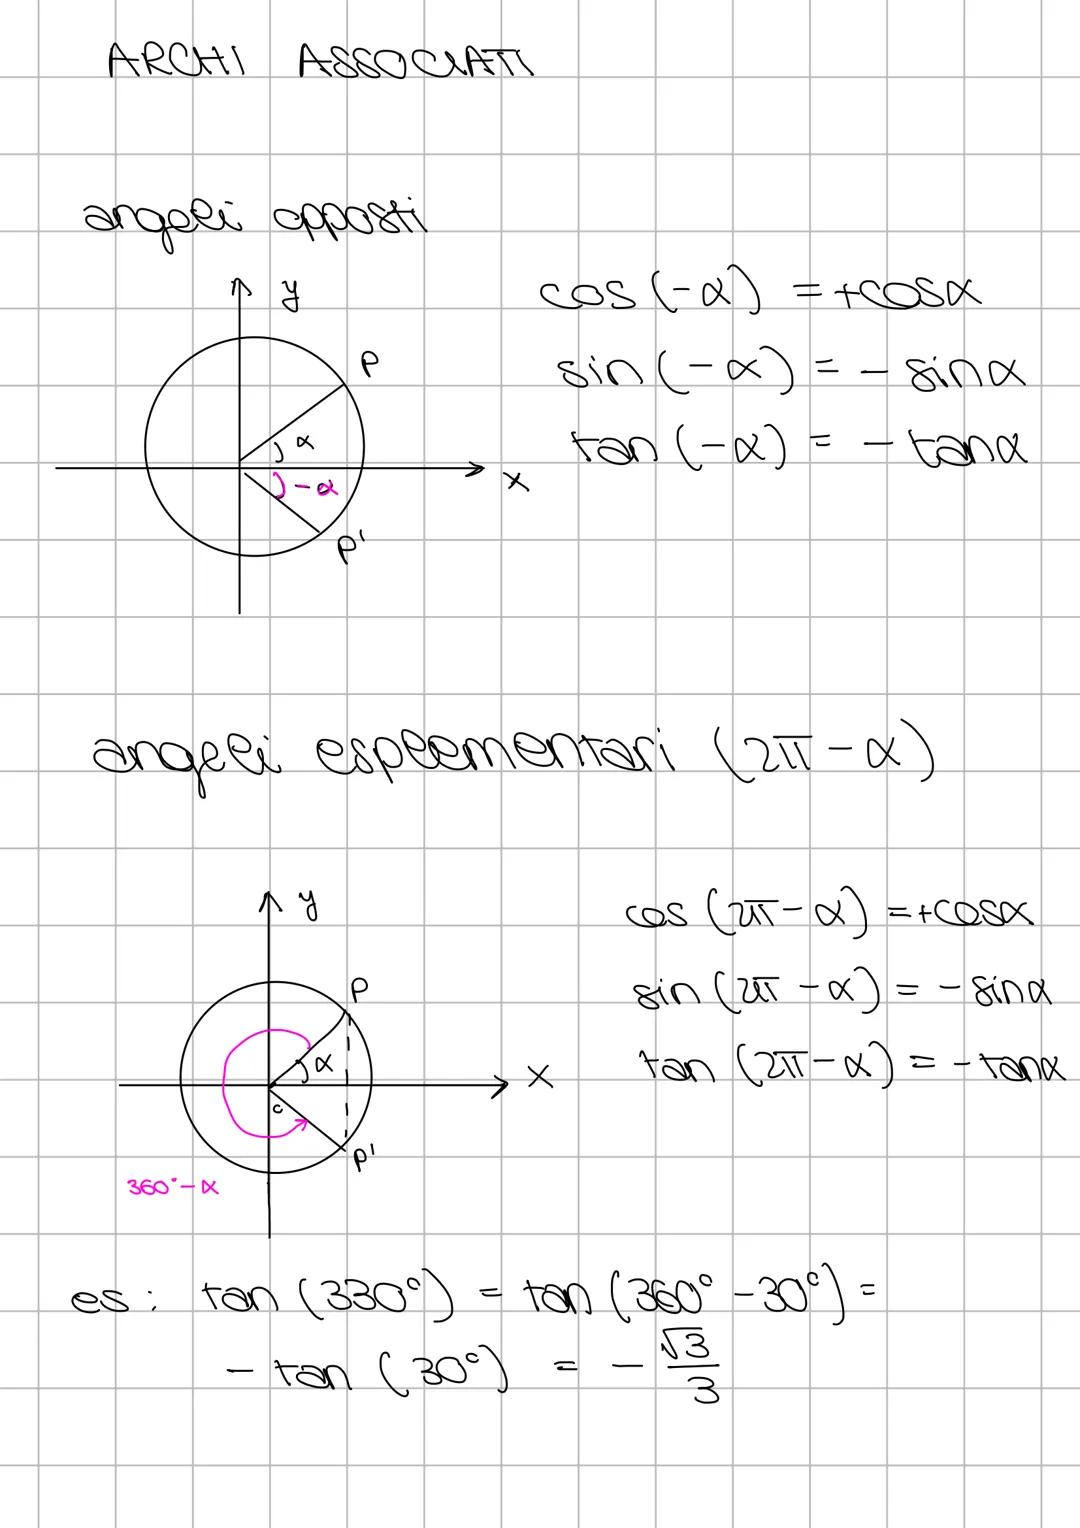 ARCHI ASSOCIATI
angoli opposti
y
cos (-α) = +cosα
P
sin (-α) = - sinα
α
tan (-α) = - tanα
-α
x
P'
angoli esplementari (2π-α)
y
cos (2π-α) = +cosα
P
sin (2π-α) = - sinα
α
tan (2π-α) = - tanα
x
c
P'
360°-α
es: tan (330°) = tan (360° -30°) =
- tan (30°) = - √3/3